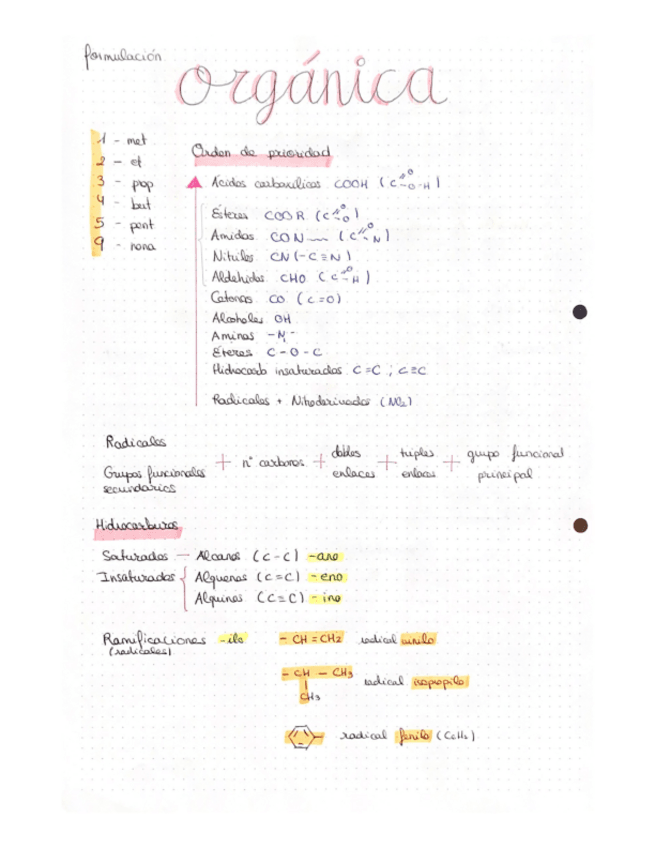 formulación
orgánica
1 - met
2 - et
3 - prop
4 - but
5 - pent
9 - nona
Orden de prioridad
Ácidos carboxílicos COOH (C=O-O-H)
Ésteres COOR (C=O-O)
Amidas CON (C=O-N)
Nitrilos CN (-C≡N)
Aldehidos CHO (C=O-H)
Cetonas CO (C=O)
Alcoholes OH
Aminas -N-
Éteres C-O-C
Hidrocarb insaturados C=C ; C≡C
Radicales + Nitroderivados (NO2)
Radicales
Grupos funcionales secundarios + nº carbonos + dobles enlaces + triples enlaces + grupo funcional principal
Hidrocarburos
Saturados — Alcanos (C-C) -ano
Insaturados { Alquenos (C=C) -eno
Alquinos (C≡C) -ino
Ramificaciones -ilo
(radicales)
- CH = CH2 radical vinilo
- CH - CH3 radical isopropilo
CH3
radical fenilo (C6H5)